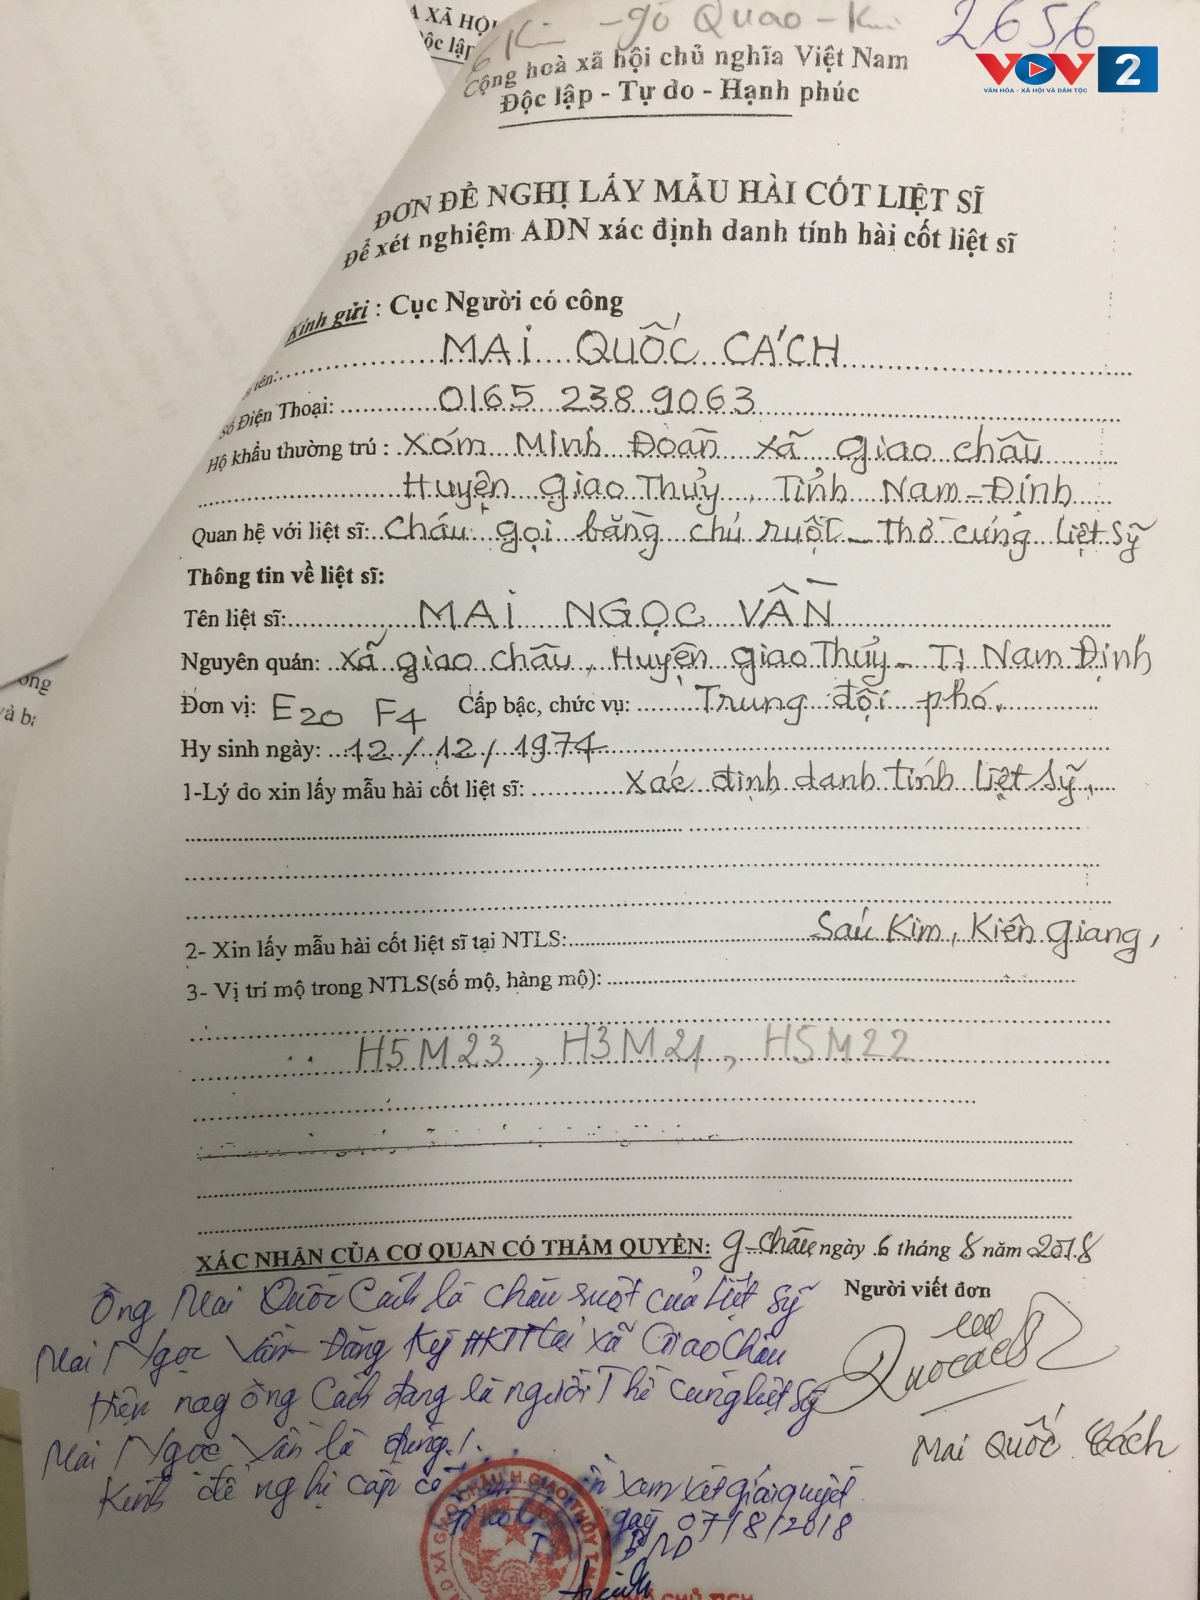 A XÃ HỘI
Độc lập
Gò Quao - Ki
2656
VOV 2
VĂN HÓA - XÃ HỘI VÀ DÂN TỘC
Cộng hoà xã hội chủ nghĩa Việt Nam
Độc lập - Tự do - Hạnh phúc
ĐƠN ĐỀ NGHỊ LẤY MẪU HÀI CỐT LIỆT SĨ
Để xét nghiệm ADN xác định danh tính hài cốt liệt sĩ
Kính gửi : Cục Người có công
tên: MAI QUỐC CÁCH
Số Điện Thoại: 0165 238 9063
Hộ khẩu thường trú : Xóm Minh Đoàn xã Giao Châu
Huyện Giao Thủy, Tỉnh Nam-Định
Quan hệ với liệt sĩ: Cháu gọi bằng chú ruột - Thờ cúng liệt sỹ
Thông tin về liệt sĩ:
Tên liệt sĩ: MAI NGỌC VẦN
Nguyên quán: Xã Giao Châu, Huyện Giao Thủy - T. Nam Định
Đơn vị: E20 F4 Cấp bậc, chức vụ: Trung đội phó.
Hy sinh ngày: 12/12/1974
1-Lý do xin lấy mẫu hài cốt liệt sĩ: Xác định danh tính liệt sỹ.
2- Xin lấy mẫu hài cốt liệt sĩ tại NTLS: Sáu Kim, Kiên Giang,
3- Vị trí mộ trong NTLS(số mộ, hàng mộ):
H5M23, H3M21, H5M22
XÁC NHẬN CỦA CƠ QUAN CÓ THẨM QUYỀN: G-Châu, ngày 6 tháng 8 năm 2018
Người viết đơn
Ông Mai Quốc Cách là cháu ruột của liệt sỹ
Mai Ngọc Vần Đăng Ký HKTT tại xã Giao Châu
Hiện nay ông Cách đang là người Thờ cúng liệt sỹ
Mai Ngọc Vần là đúng!
Kính đề nghị cấp có xem xét giải quyết
ngày 07/8/2018
Mai Quốc Cách
XÃ GIAO CHÂU H.GIAO THỦY T.
CHỦ TỊCH